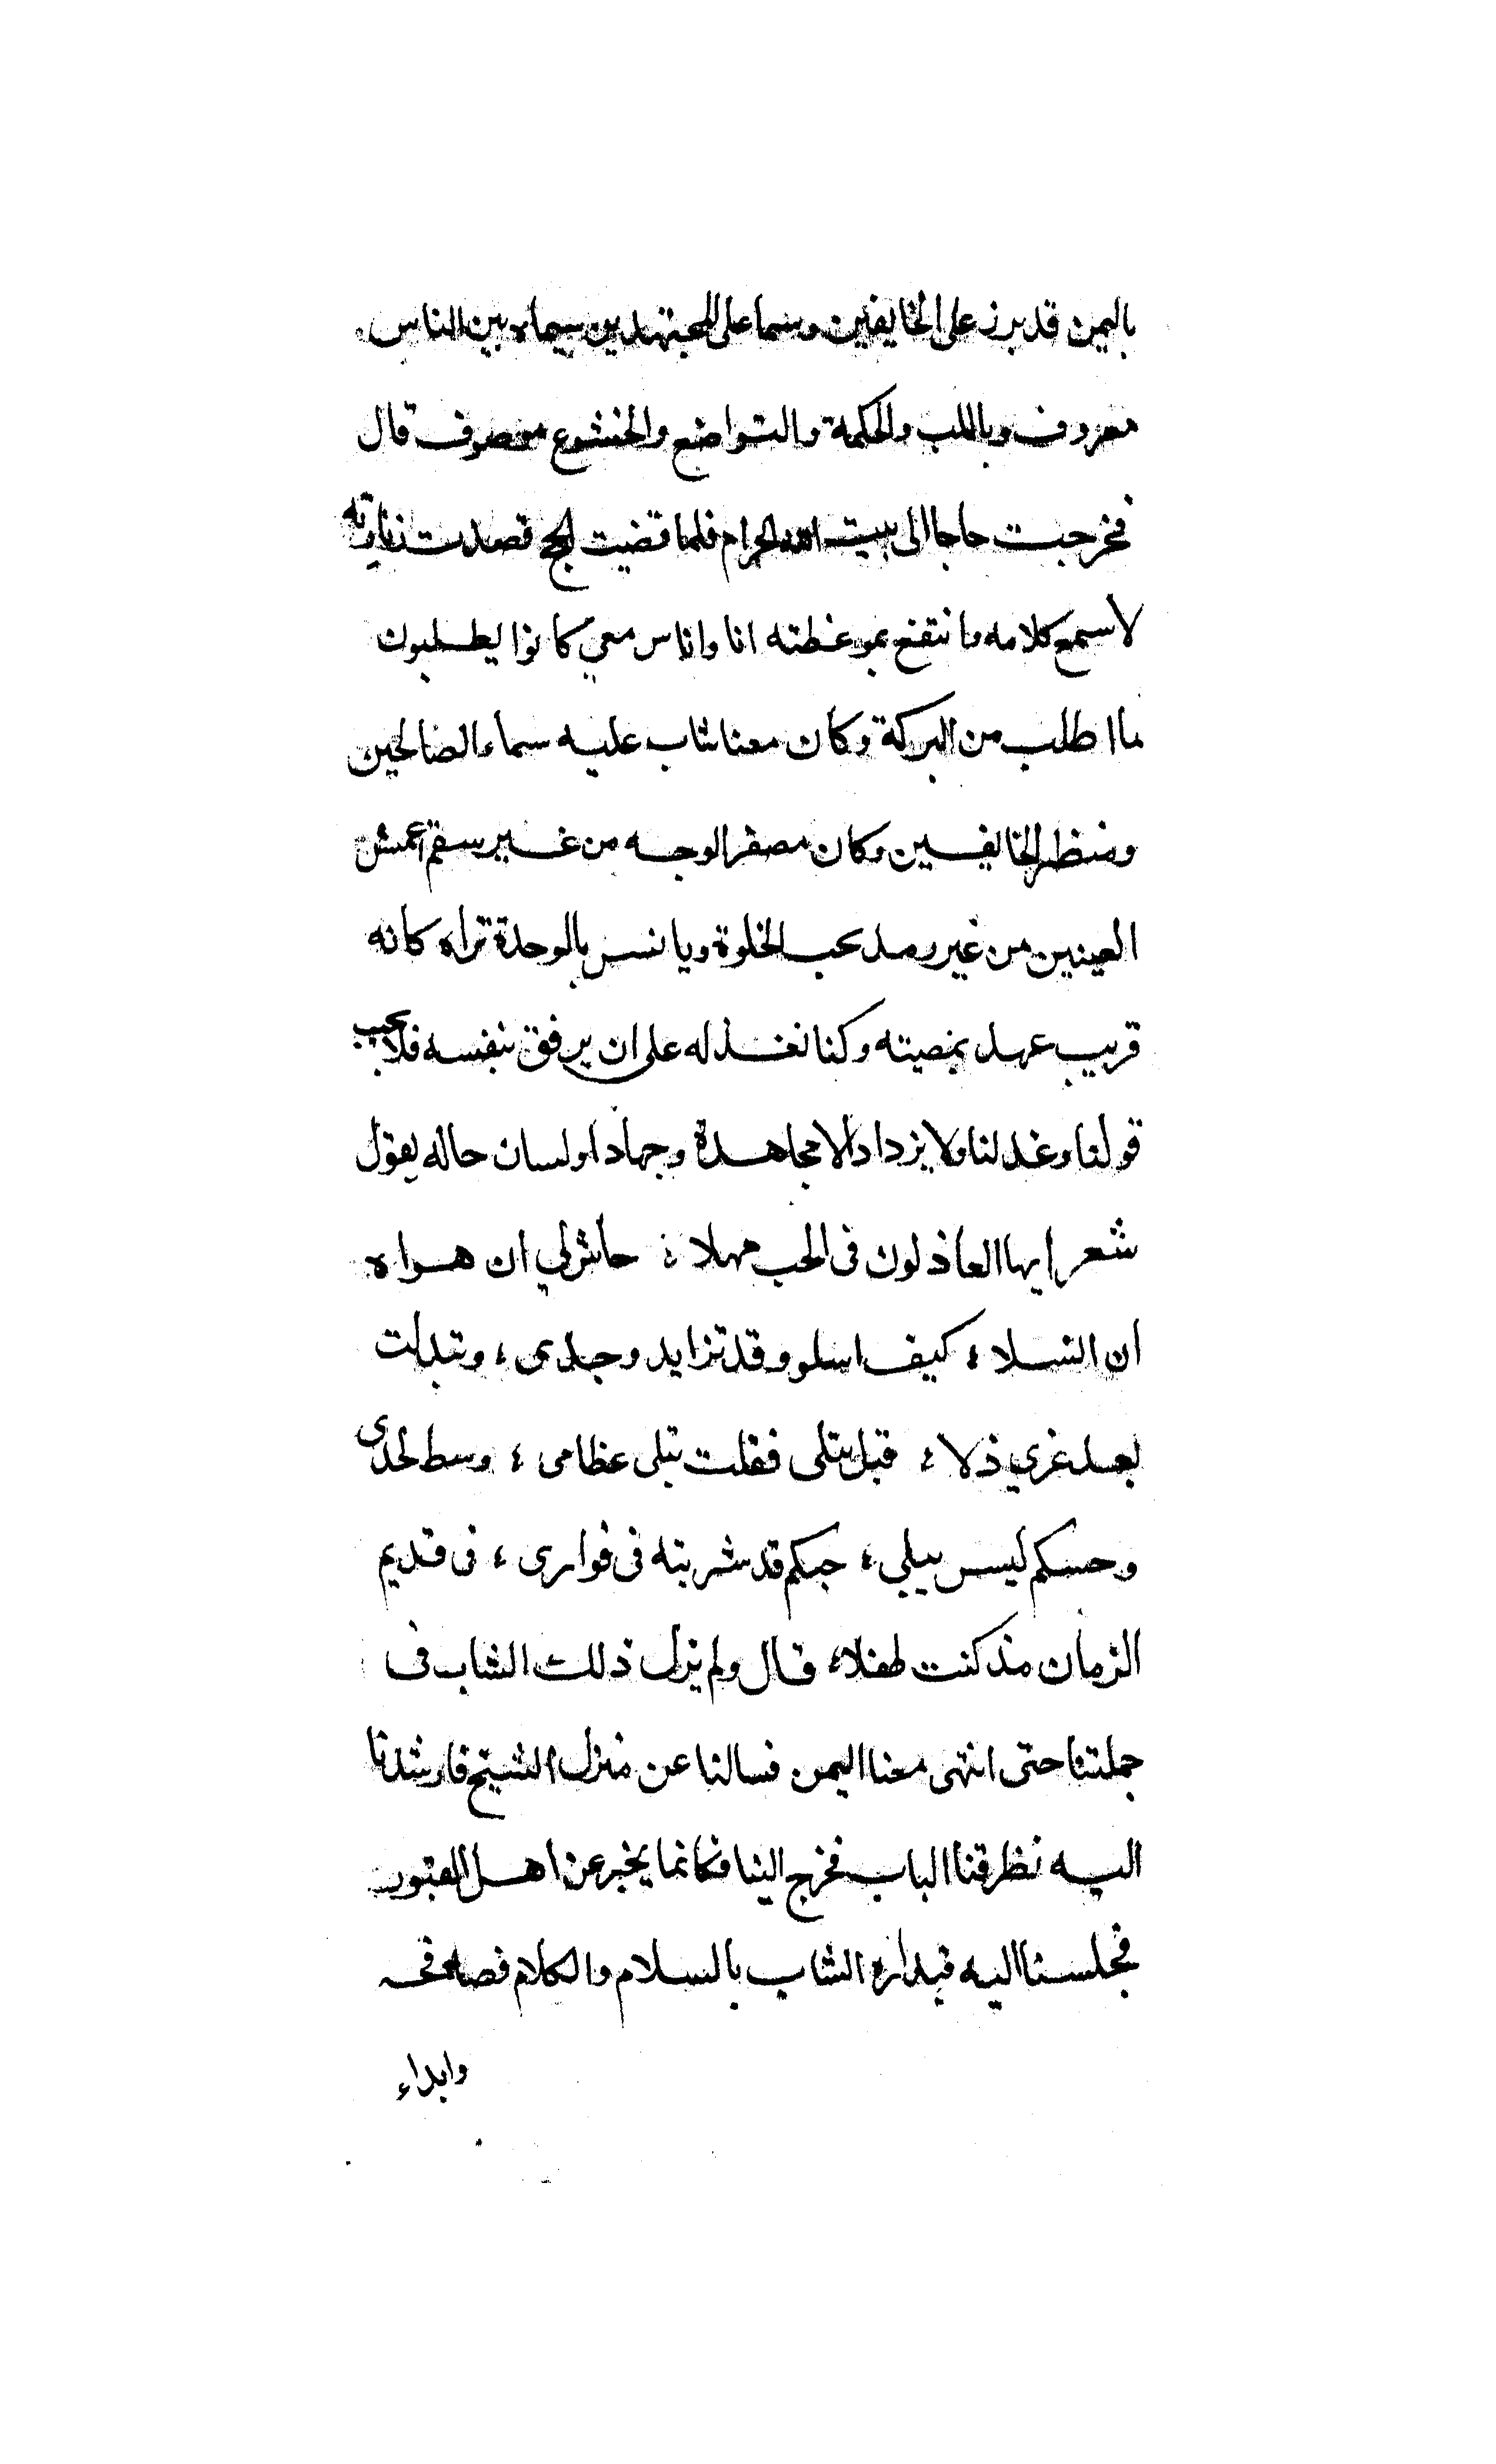 باليمن قد برز على الخايفين وسما على المجتهدين سيماه بين الناس
معروف وباللب والحكمة والتواضع والخشوع موصوف قال
فخرجت حاجا الى بيت الله الحرام فلما قضيت الحج قصدت زيارته
لاسمع كلامه وانتفع بموعظته انا واناس معي كانوا يطلبون
ما اطلب من البركة وكان معنا شاب عليه سماء الصالحين
ومنظر الخايفين وكان مصفر الوجه من غير سقم اعمش
العينين من غير رمد يحب الخلوة ويانس بالوحدة تراه كانه
قريب عهد بمصيته وكنا نعذله على ان يرفق بنفسه فلا يجيب
قولنا وعذلنا ولا يزداد الا مجاهدة وجهادا ولسان حاله يقول
شعر ايها العاذلون في الحب مهلا ؛ حاش لي ان هواه
ان السلا ؛ كيف اسلو وقد تزايد وجدى ؛ وتبدلت
بعد عزي ذلا ؛ قيل يبلى فقلت تبلى عظامى ؛ وسط لحدى
وحبكم ليس يبلي ؛ حبكم قد شربته فى فوادى ؛ فى قديم
الزمان مذ كنت طفلا ؛ قال ولم يزل ذلك الشاب فى
جملتنا حتى انتهى معنا اليمن فسالنا عن منزل الشيخ فارشدنا
اليه فطرقنا الباب فخرج الينا فكانما يخبر عن اهل القبور
فجلسنا اليه فبداره الشاب بالسلام والكلام فصافحه
وابداء